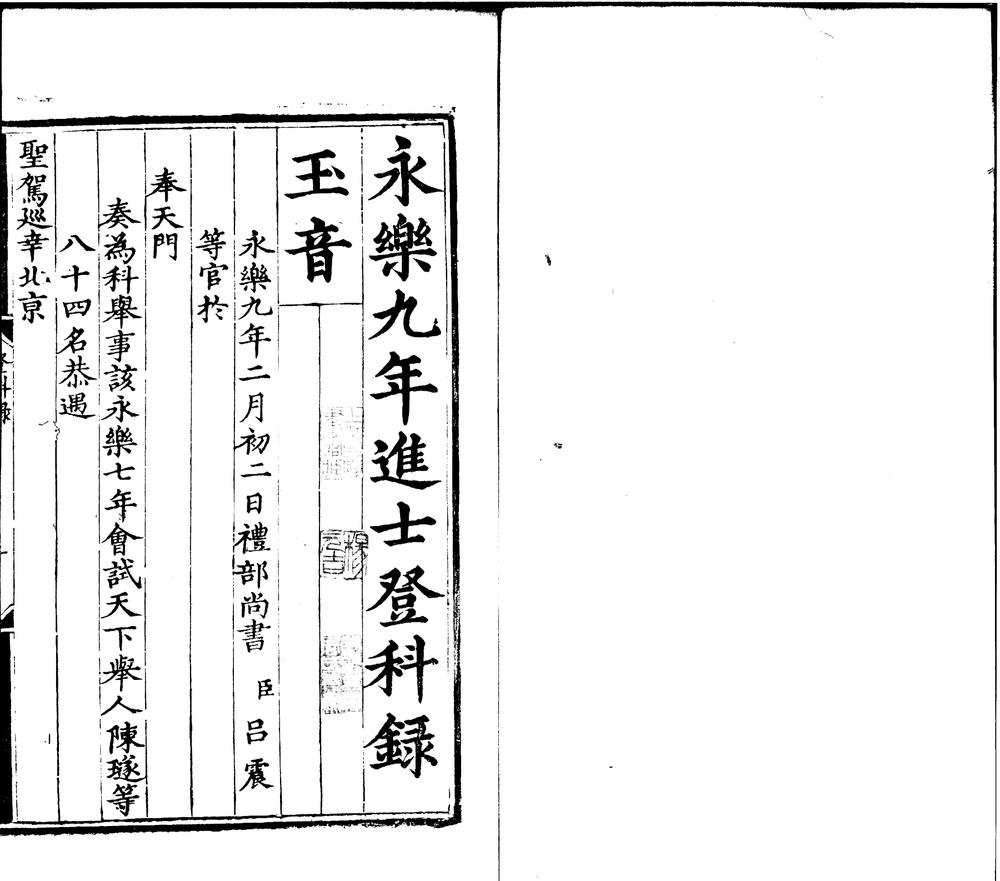 永樂九年進士登科録
玉音
永樂九年二月初二日禮部尚書臣吕震
等官於
奉天門
奏為科舉事該永樂七年會試天下舉人陳璲等
八十四名恭遇
聖駕廵幸北京